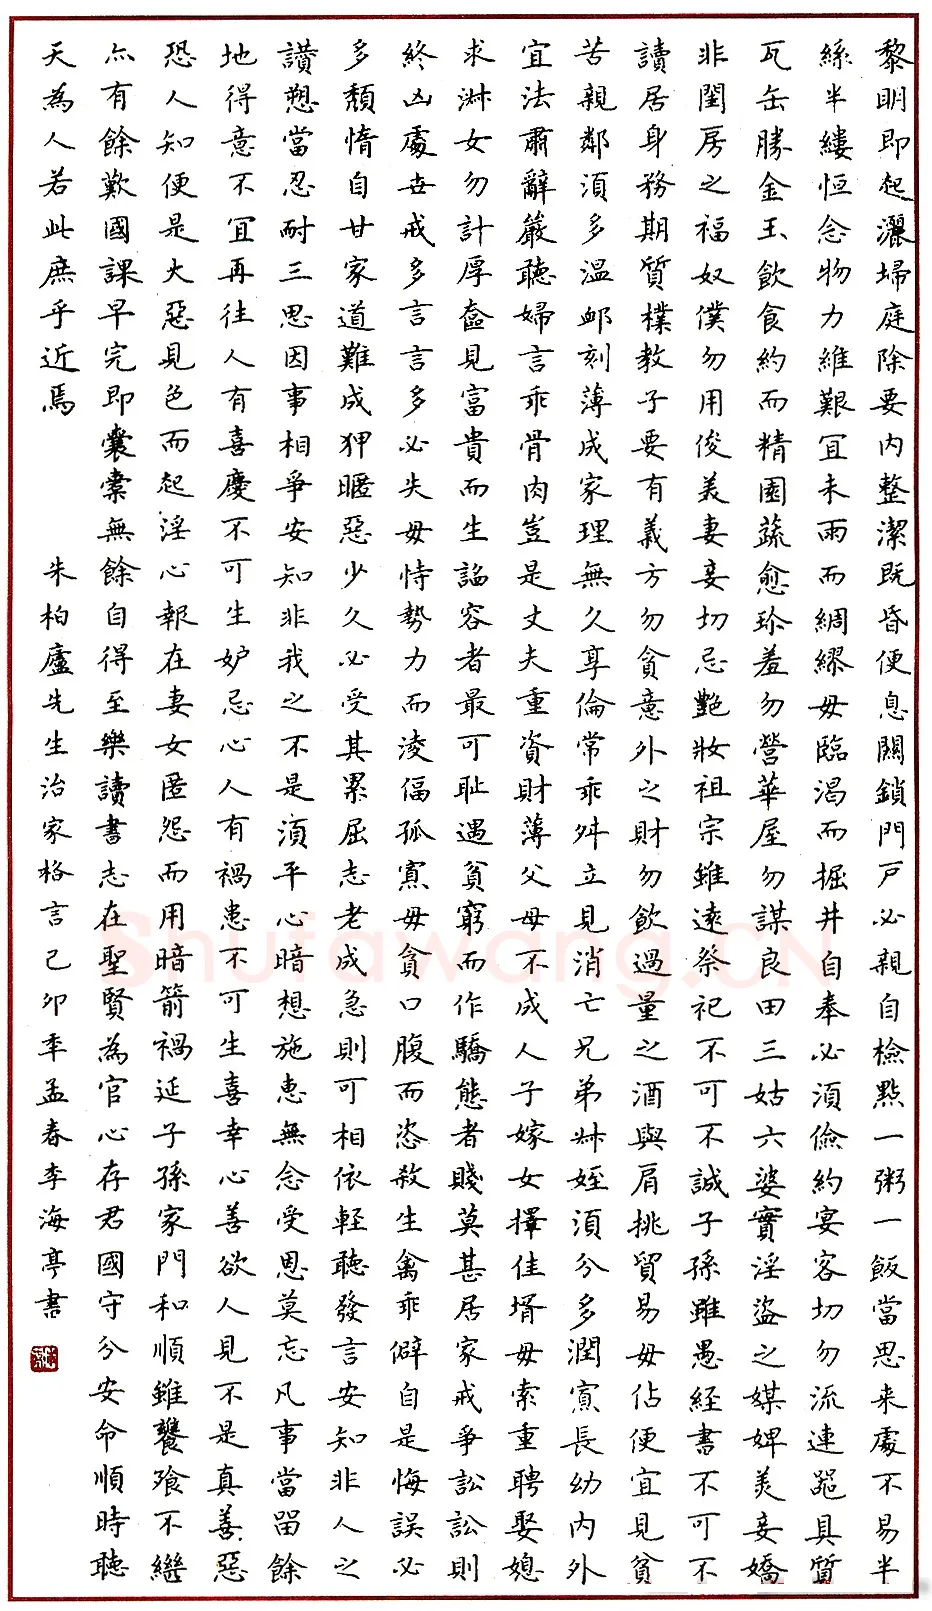 黎明即起灑埽庭除要內整潔既昏便息關鎖門戶必親自檢點一粥一飯當思来處不易半
絲半縷恒念物力維艱宜未雨而綢繆毋臨渴而掘井自奉必須儉約宴客切勿流連器具質
瓦缶勝金玉飲食約而精園蔬愈珍羞勿營華屋勿謀良田三姑六婆實淫盜之媒婢美妾嬌
非閨房之福奴僕勿用俊美妻妾切忌艷妝祖宗雖遠祭祀不可不誠子孫雖愚經書不可不
讀居身務期質樸教子要有義方勿貪意外之財勿飲過量之酒與肩挑貿易毋佔便宜見貧
苦親鄰須多溫卹刻薄成家理無久享倫常乖舛立見消亡兄弟叔姪須分多潤寡長幼內外
宜法肅辭嚴聽婦言乖骨肉豈是丈夫重資財薄父母不成人子嫁女擇佳壻毋索重聘娶媳
求淑女勿計厚奩見富貴而生諂容者最可恥遇貧窮而作驕態者賤莫甚居家戒爭訟訟則
終凶處世戒多言言多必失毋恃勢力而淩偪孤寡毋貪口腹而恣殺生禽乖僻自是悔誤必
多頹惰自甘家道難成狎暱惡少久必受其累屈志老成急則可相依輕聽發言安知非人之
讃愬當忍耐三思因事相爭安知非我之不是須平心暗想施惠無念受恩莫忘凡事當留餘
地得意不宜再往人有喜慶不可生妒忌心人有禍患不可生喜幸心善欲人見不是真善惡
恐人知便是大惡見色而起淫心報在妻女匿怨而用暗箭禍延子孫家門和順雖饔飧不繼
亦有餘歡國課早完即囊橐無餘自得至樂讀書志在聖賢為官心存君國守分安命順時聽
天為人若此庶乎近焉 朱柏廬先生治家格言己卯年孟春李海亭書
Shufawang.CN